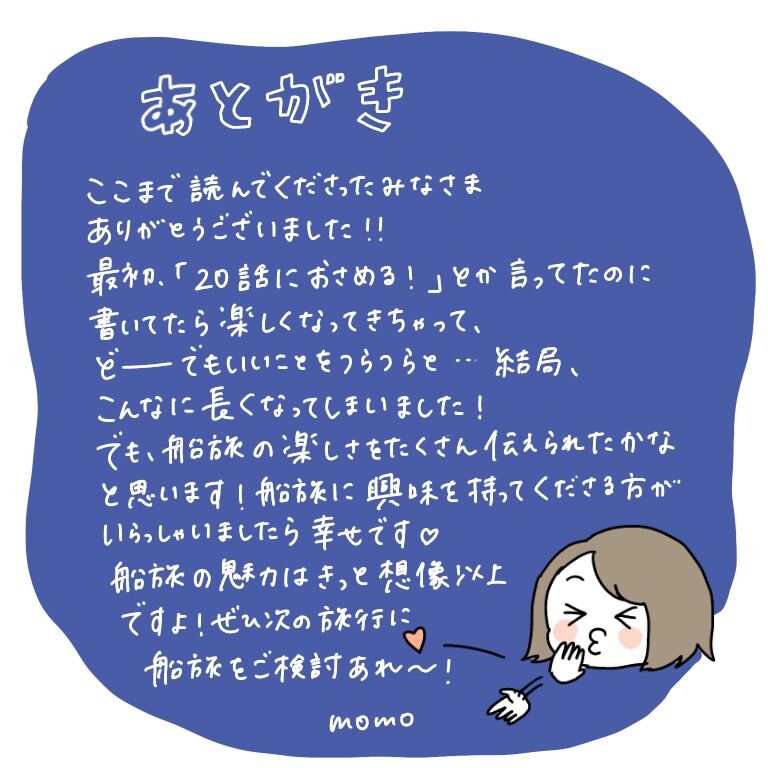 あとがき
ここまで読んでくださったみなさま
ありがとうございました!!
最初、「20話におさめる!」とか言ってたのに
書いてたら楽しくなってきちゃって、
ど──でもいいことをつらつらと… 結局、
こんなに長くなってしまいました!
でも、船旅の楽しさをたくさん伝えられたかな
と思います!船旅に興味を持ってくださる方が
いらっしゃいましたら幸せです♡
船旅の魅力はきっと想像以上
ですよ!ぜひ次の旅行に
船旅をご検討あれ〜!
momo